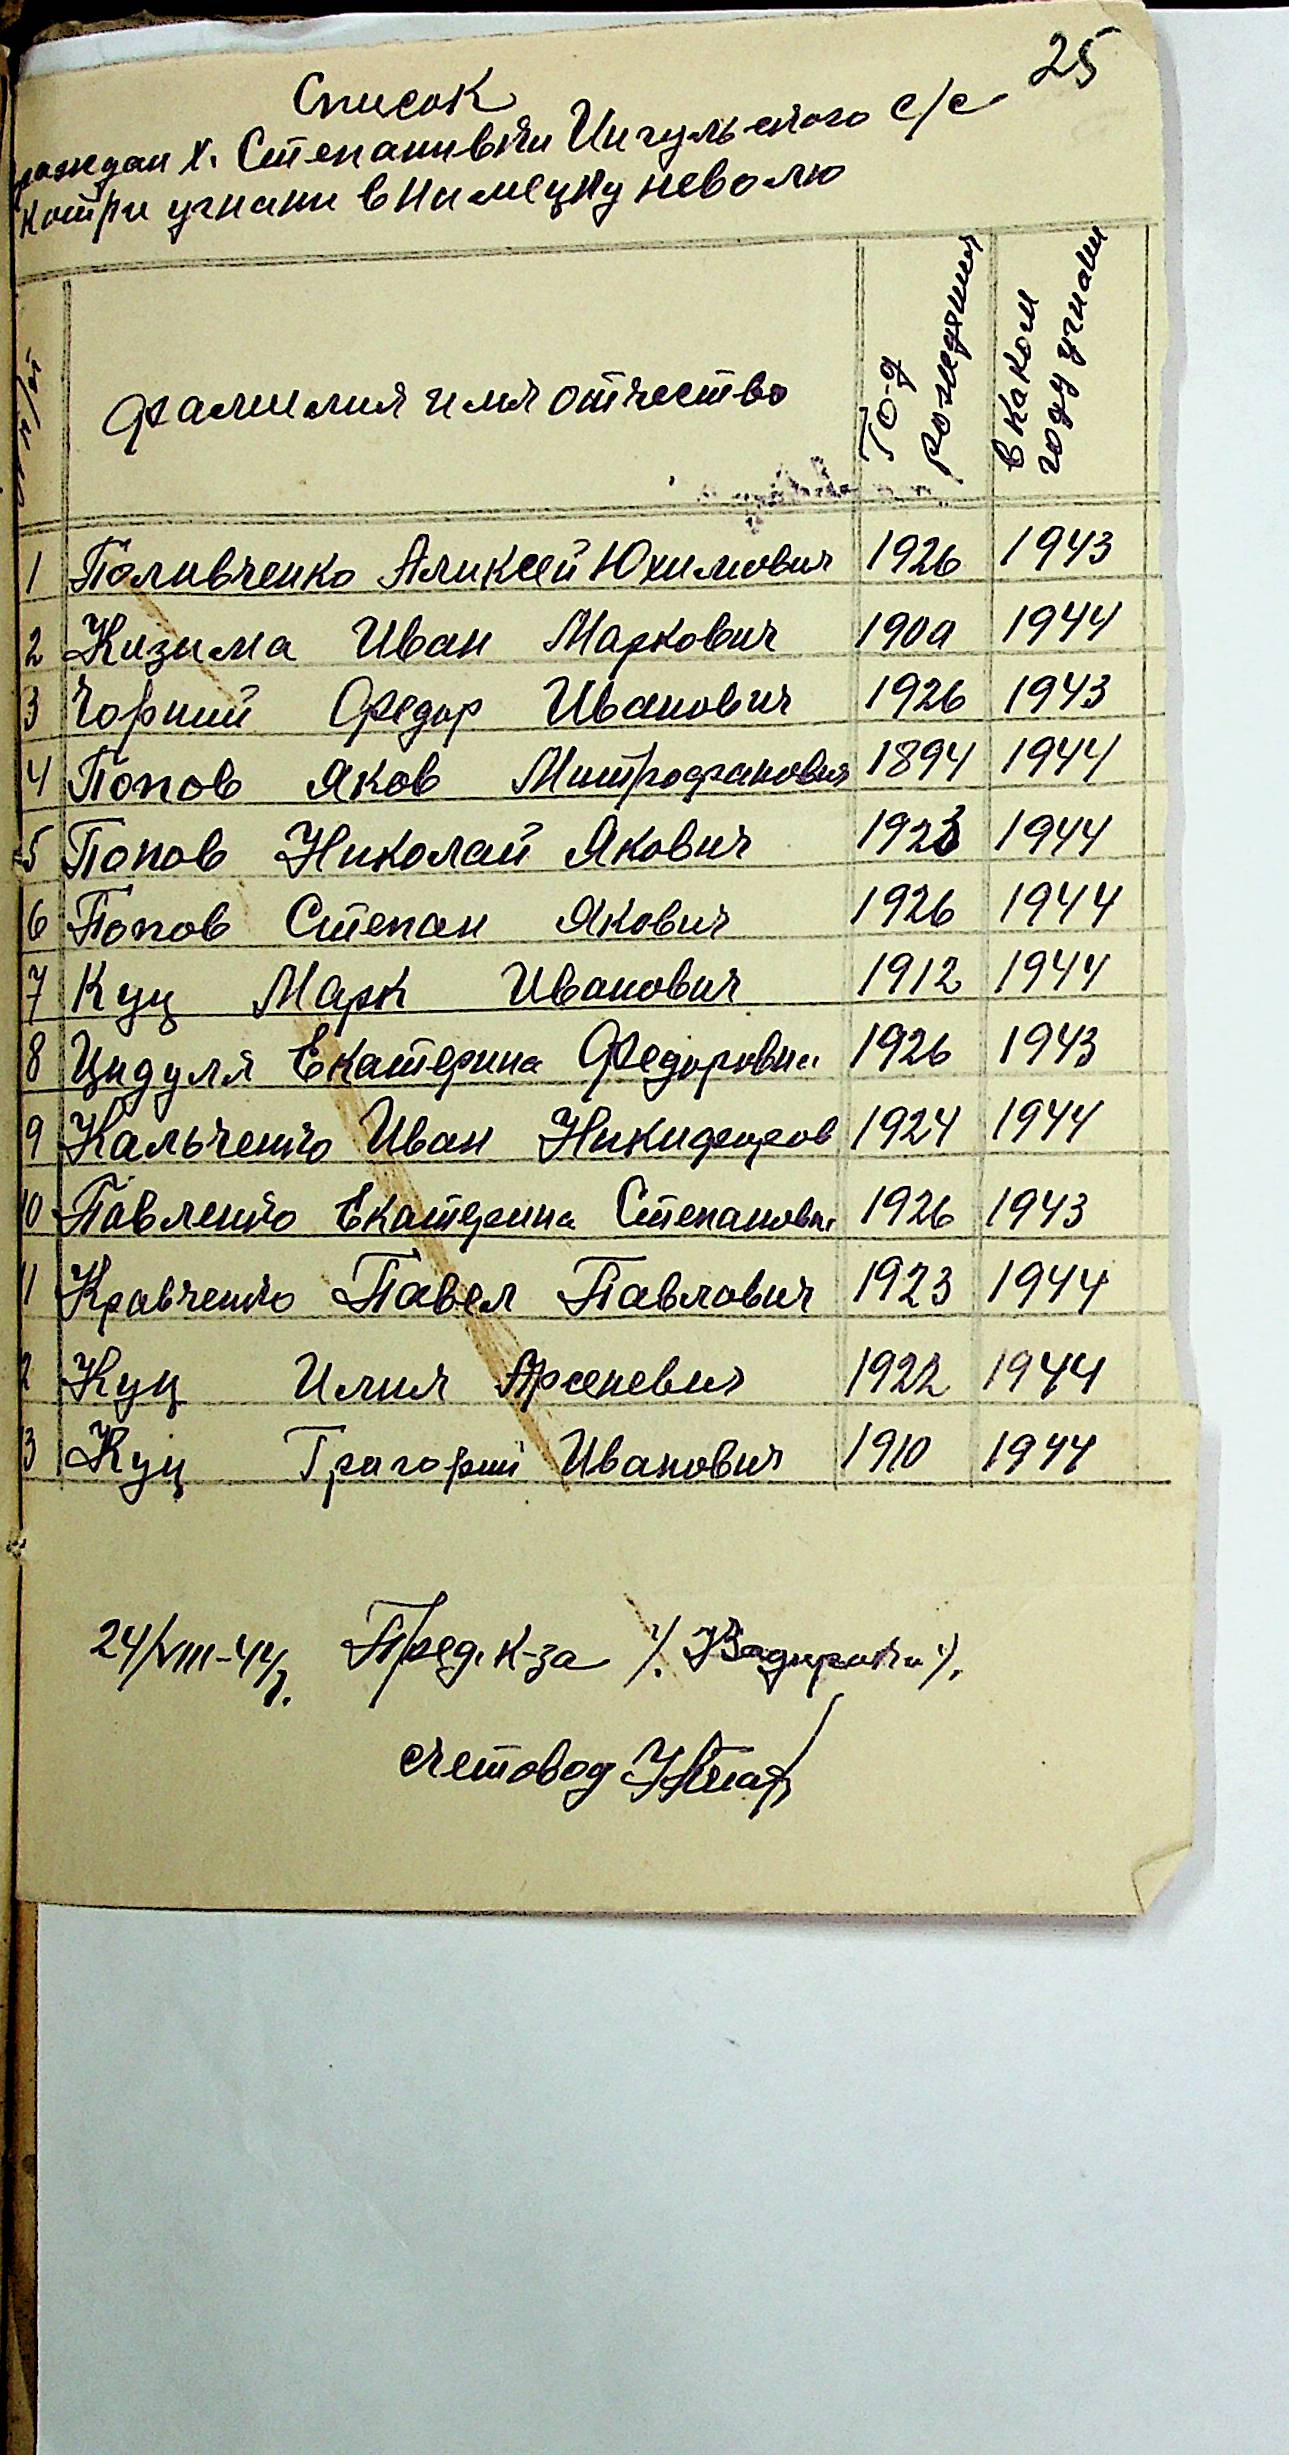 25
Список
граждан х. Степанивки Ингульского с/с
котри угнани в нимецку неволю
фамилия имя отчество Го-д рождения в каком году угнани
1 Поливченко Аликсей Юхимович 1926 1943
2 Кизима Иван Маркович 1909 1944
3 Чорний Федор Иванович 1926 1943
4 Попов Яков Митрофанович 1894 1944
5 Попов Николай Якович 1923 1944
6 Попов Степан Якович 1926 1944
7 Куц Марк Иванович 1912 1944
8 Циدуля Екатерина Федоровна 1926 1943
9 Кальченко Иван Никифоров 1924 1944
10 Павленко Екатерина Степановн. 1926 1943
11 Кравченко Павел Павлович 1923 1944
2 Куц Илия Арсеневич 1922 1944
3 Куц Григорий Иванович 1910 1944
24/VIII-44г. Пред. к-за
счетовод